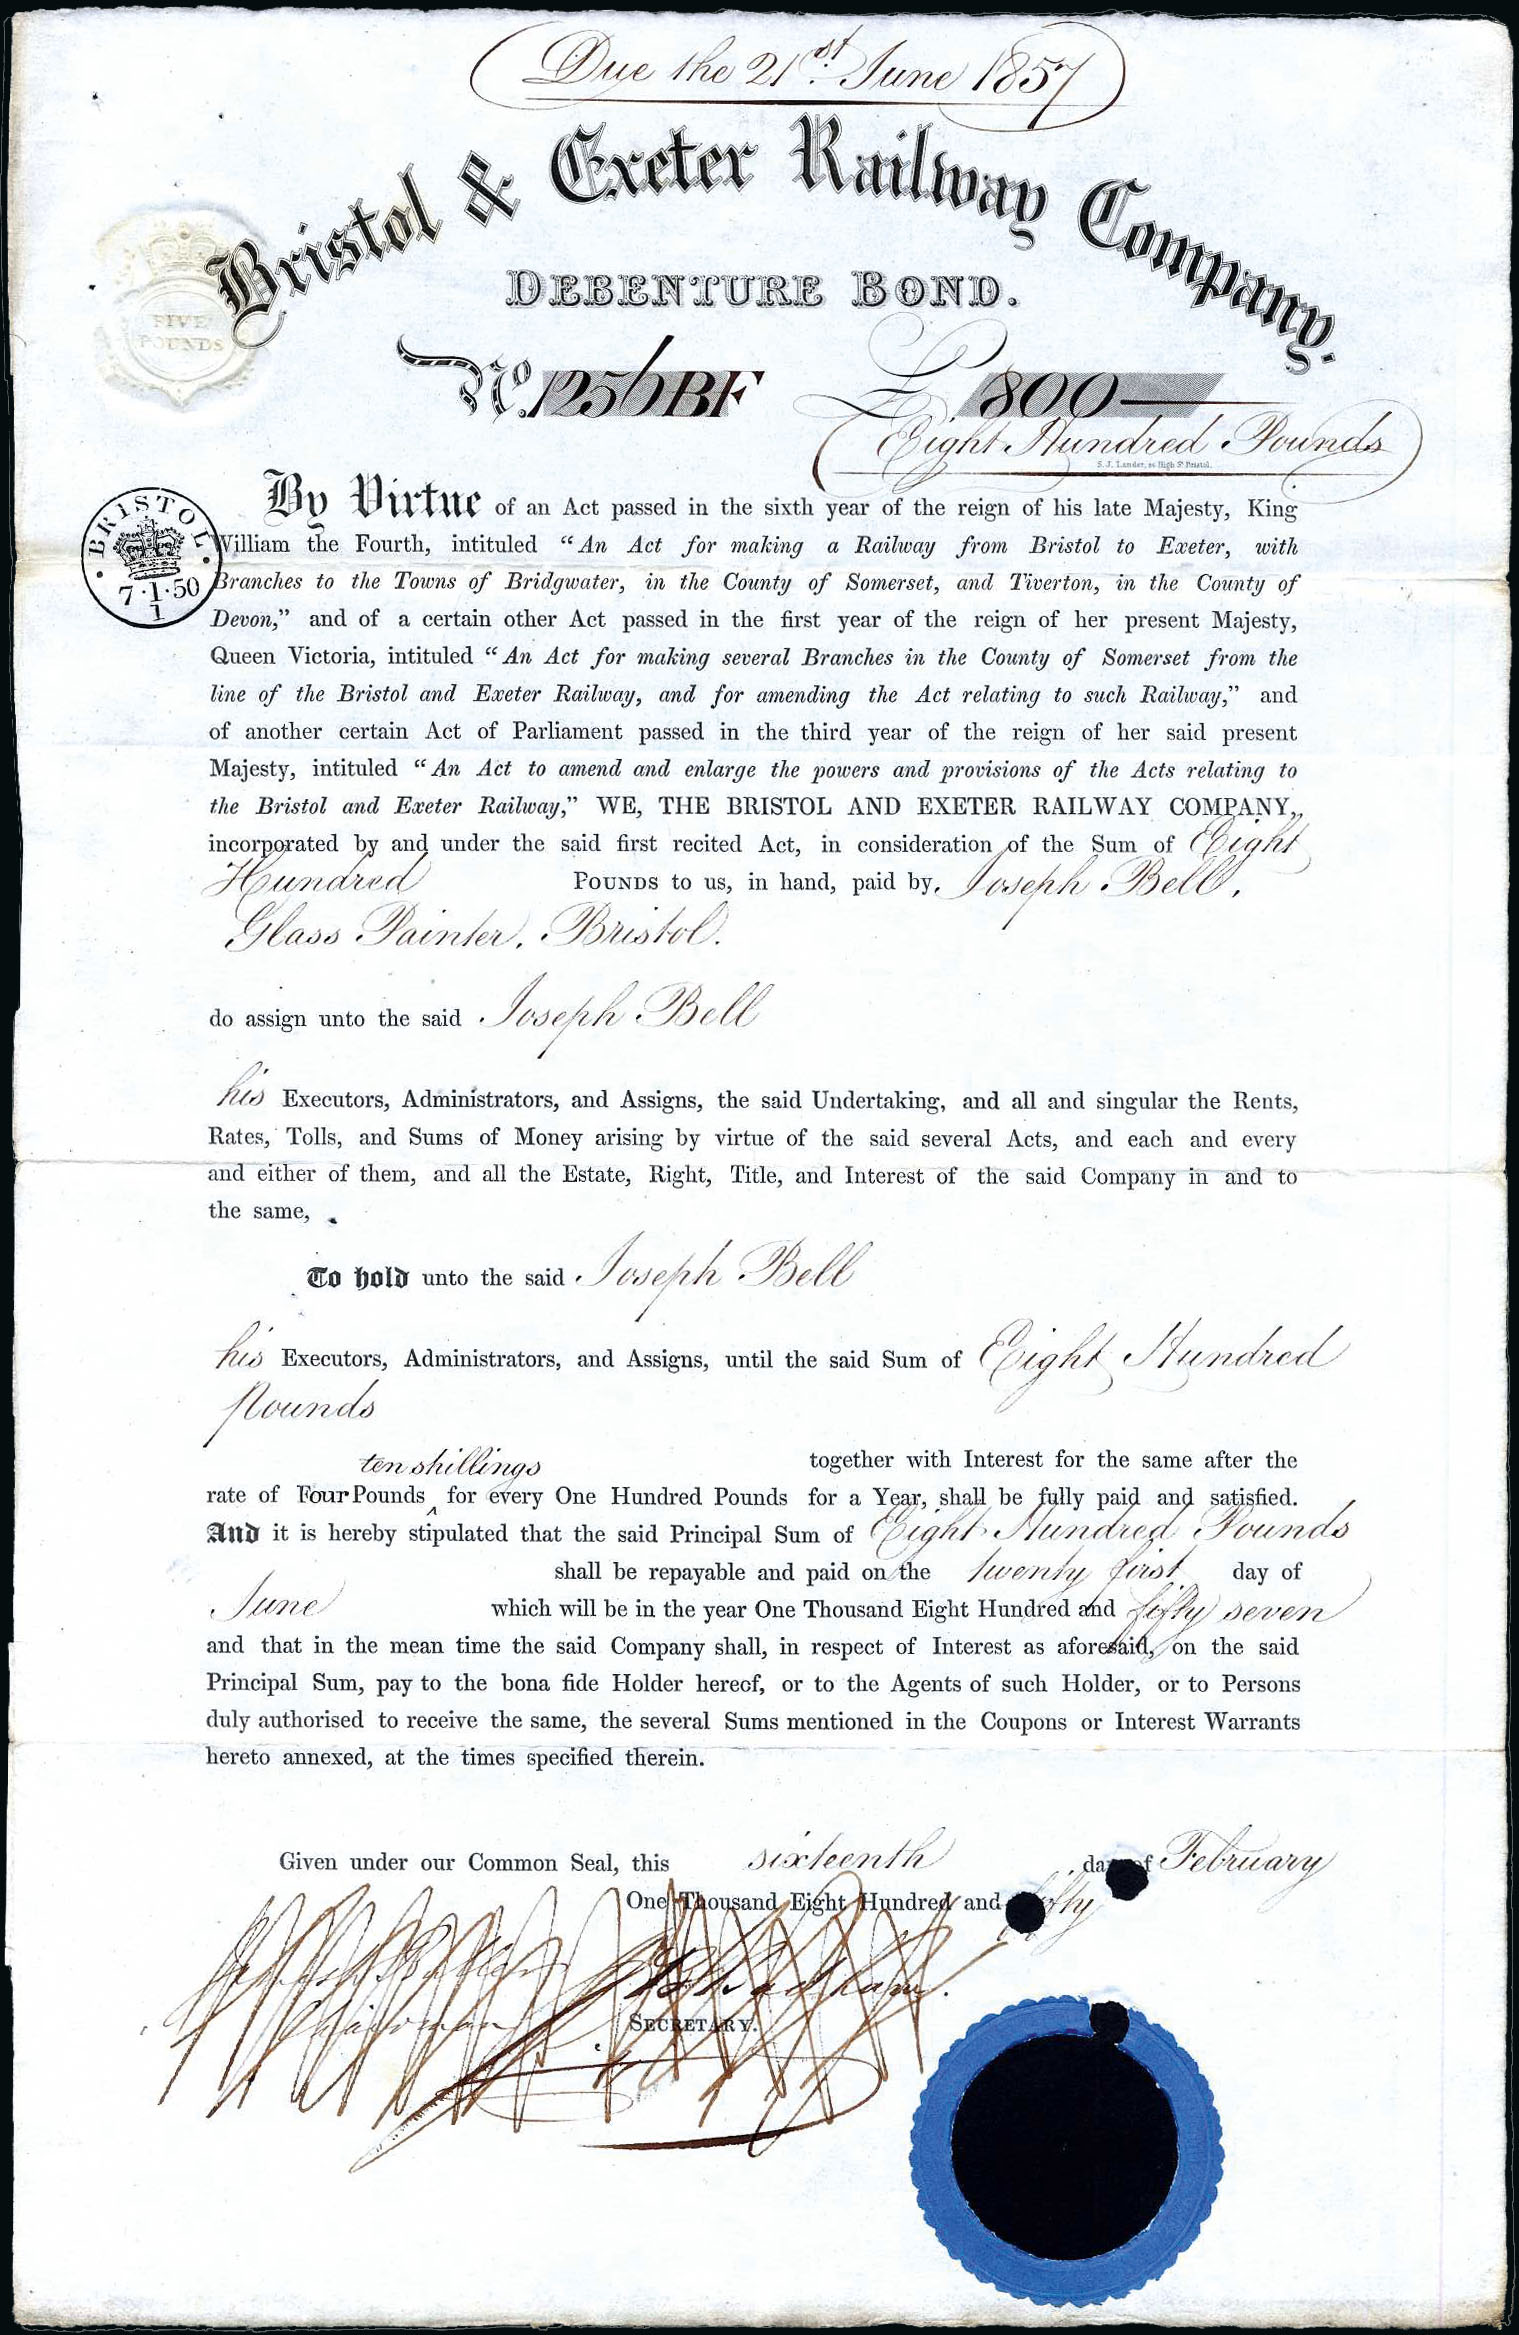 Due the 21st. June 1857
Bristol & Exeter Railway Company.
DEBENTURE BOND.
FIVE
POUNDS
No. 1256 BF £ 800
Eight Hundred Pounds
S. J. Lander, 22 High St Bristol.
BRISTOL
7·1·50
1
By Virtue of an Act passed in the sixth year of the reign of his late Majesty, King
William the Fourth, intituled “An Act for making a Railway from Bristol to Exeter, with
Branches to the Towns of Bridgwater, in the County of Somerset, and Tiverton, in the County of
Devon,” and of a certain other Act passed in the first year of the reign of her present Majesty,
Queen Victoria, intituled “An Act for making several Branches in the County of Somerset from the
line of the Bristol and Exeter Railway, and for amending the Act relating to such Railway,” and
of another certain Act of Parliament passed in the third year of the reign of her said present
Majesty, intituled “An Act to amend and enlarge the powers and provisions of the Acts relating to
the Bristol and Exeter Railway,” WE, THE BRISTOL AND EXETER RAILWAY COMPANY,
incorporated by and under the said first recited Act, in consideration of the Sum of Eight
Hundred POUNDS to us, in hand, paid by, Joseph Bell,
Glass Painter, Bristol.
do assign unto the said Joseph Bell
his Executors, Administrators, and Assigns, the said Undertaking, and all and singular the Rents,
Rates, Tolls, and Sums of Money arising by virtue of the said several Acts, and each and every
and either of them, and all the Estate, Right, Title, and Interest of the said Company in and to
the same,
To hold unto the said Joseph Bell
his Executors, Administrators, and Assigns, until the said Sum of Eight Hundred
Pounds
ten shillings together with Interest for the same after the
rate of Four Pounds ‸ for every One Hundred Pounds for a Year, shall be fully paid and satisfied.
And it is hereby stipulated that the said Principal Sum of Eight Hundred Pounds
shall be repayable and paid on the twenty first day of
June which will be in the year One Thousand Eight Hundred and fifty seven
and that in the mean time the said Company shall, in respect of Interest as aforesaid, on the said
Principal Sum, pay to the bona fide Holder hereof, or to the Agents of such Holder, or to Persons
duly authorised to receive the same, the several Sums mentioned in the Coupons or Interest Warrants
hereto annexed, at the times specified therein.
Given under our Common Seal, this sixteenth day of February
One Thousand Eight Hundred and fifty
Badham.
Chairman SECRETARY.